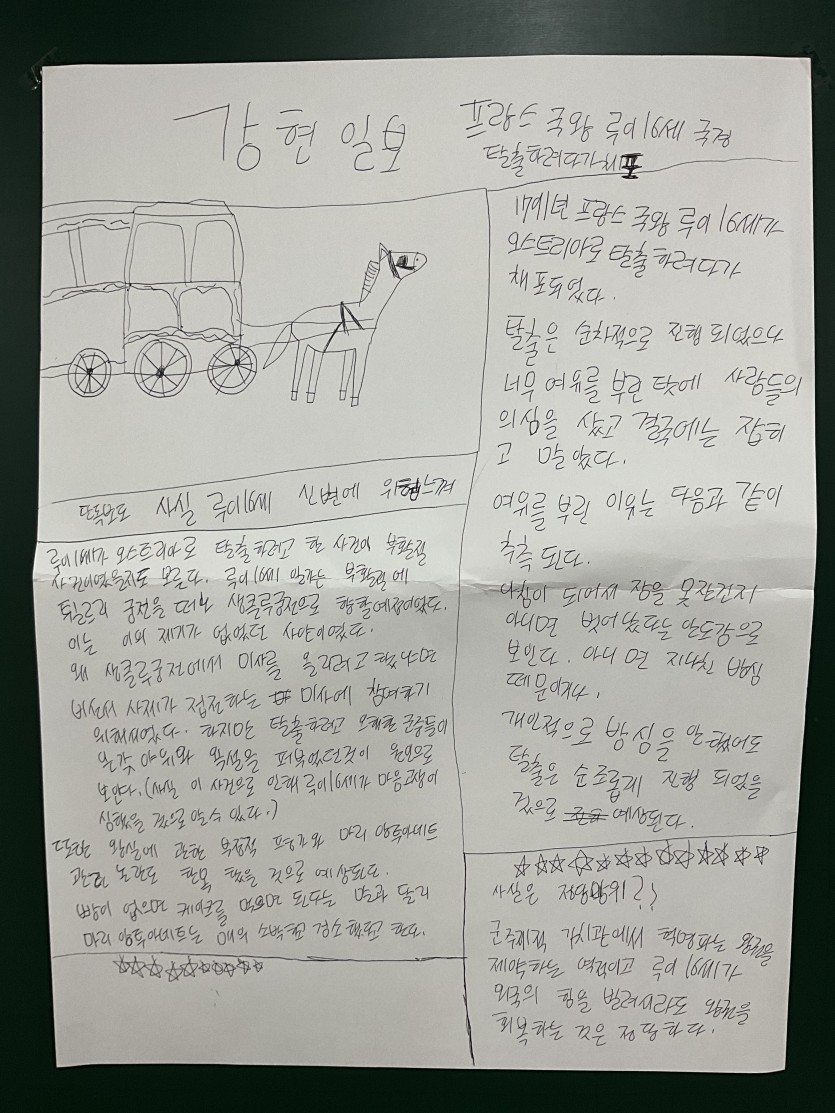 강현일보
프랑스 국왕 루이16세 국경
탈출하려다가 체포
1791년 프랑스 국왕 루이 16세가
오스트리아로 탈출하려다가
체포되었다.
탈출은 순차적으로 진행 되었으나
너무 여유를 부린 탓에 사람들의
의심을 샀고 결국에는 잡히
고 말았다.
여유를 부린 이유는 다음과 같이
추측 된다.
아침이 되어서 잠을 못잔건지
아니면 벗어났다는 안도감으로
보인다. 아니면 지나친 방심
때문이거나,
개인적으로 방심을 안했어도
탈출은 순조롭게 진행 되었을
것으로 예상된다.
단독보도 사실 루이16세 신변에 위협느껴
루이16세가 오스트리아로 탈출하려고 한 사건이 부활절
사건이였을지도 모른다. 루이16세 일가는 부활절에
튀일르리 궁전을 떠나 생클루궁전으로 향할예정이었다.
이는 이의 제기가 없었던 사안이였다.
왜 생클루궁전에서 미사를 올리려고 했냐면
비선서 사제가 집전하는 미사에 참여하기
위해서였다. 하지만 탈출하려고 오해한 군중들이
온갖 야유와 욕설을 퍼부었던것이 원인으로
보인다. (사실 이 사건으로 인해 루이16세가 마음고생이
심했을 것으로 알수 있다.)
또한 왕실에 관한 부정적 평가와 마리 앙투아네트
관련 논란도 한몫 했을 것으로 예상된다.
빵이 없으면 케이크를 먹으면 된다는 말과 달리
마리 앙투아네트는 매우 소박하고 검소했다고 한다.
☆☆☆☆☆☆☆☆☆☆
☆☆☆☆☆☆☆☆☆☆☆☆
사실은 정당방위??
군주제적 가치관에서 혁명파는 왕권을
제약하는 역적이고 루이 16세가
외국의 힘을 빌려서라도 왕권을
회복하는 것은 정당하다.